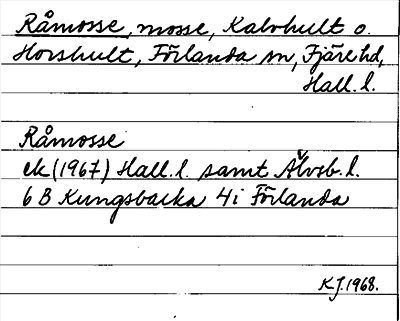 Råmosse, mosse, Kalvhult o.
Horshult, Förlanda sn, Fjäre hd,
Hall. l.
Råmosse
ek (1967) Hall. l. samt Älvsb. l.
6 B Kungsbacka 4i Förlanda
K.J. 1968.